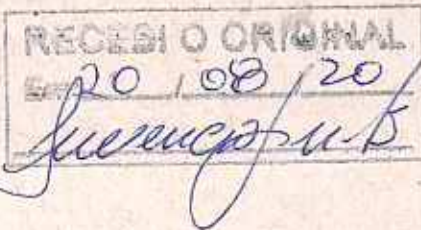 RECEBI O ORIGINAL
Em 20 / 08 / 20